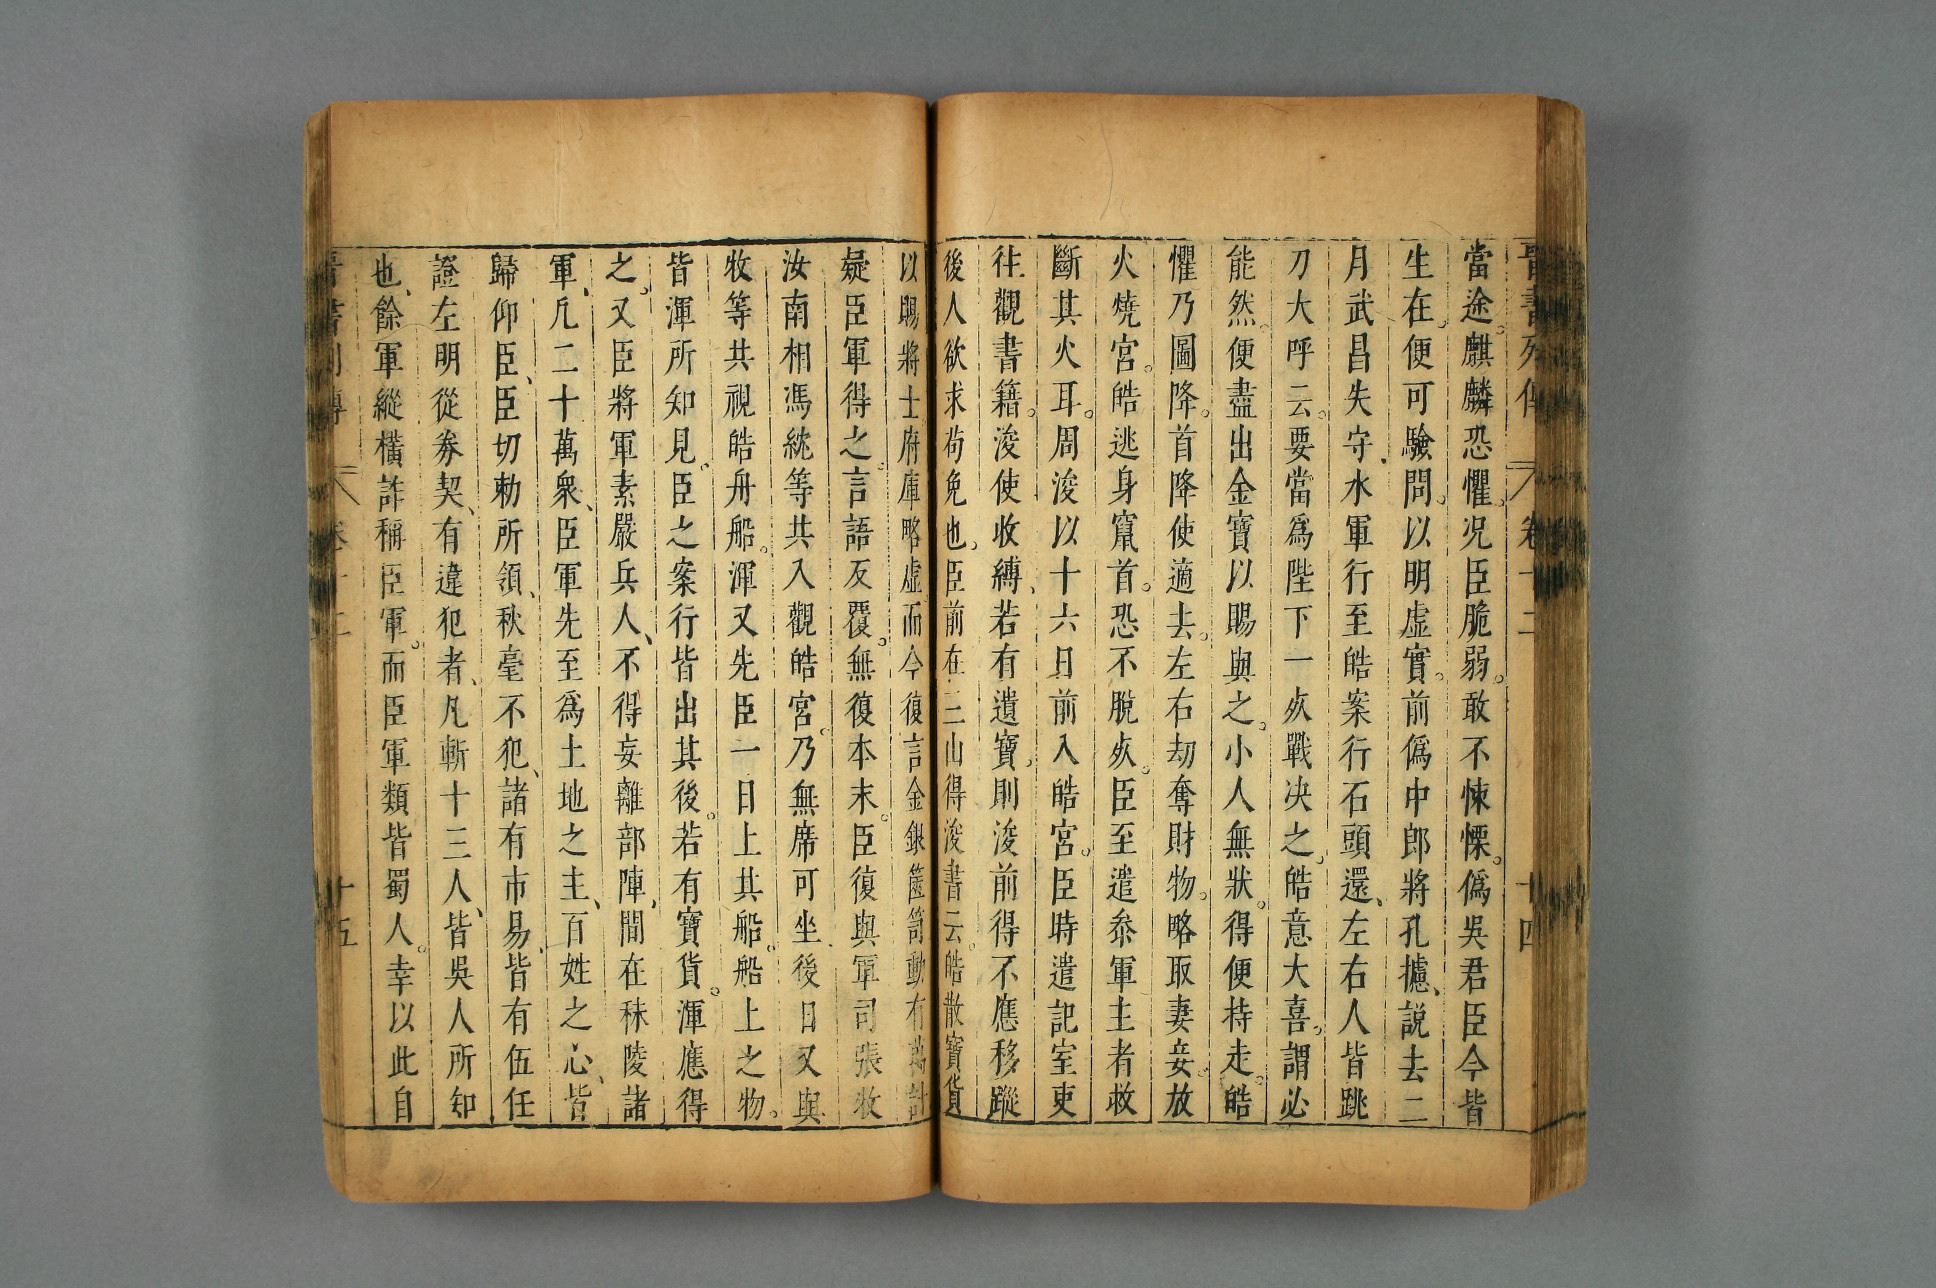 晉書列傳 卷十二 十四
當途。麒麟恐懼。况臣脆弱。敢不悚慄。偽吳君臣今皆
生在。便可驗問。以明虛實。前偽中郎將孔攄、説去二
月武昌失守、水軍行至皓案行石頭還、左右人皆跳
刀大呼云。要當爲陛下一死戰决之。皓意大喜。謂必
能然。便盡出金寶以賜與之。小人無狀。得便持走。皓
懼乃圖降。首降使適去。左右刼奪財物。略取妻妾。放
火燒宮。皓逃身竄首。恐不脫死。臣至遣叅軍主者救
斷其火耳。周浚以十六日前入皓宮。臣時遣記室吏
往觀書籍。浚使收縛、若有遺寶。則浚前得不應移蹤
後人欲求茍免也。臣前在三山得浚書云。皓散寶貨
以賜將士府庫略虛。而今復言金銀篋笥動有萬計
疑臣軍得之。言語反覆。無復本末。臣復與軍司張牧
汝南相馮紞等共入觀皓宮。乃無席可坐。後日又與
牧等共視皓舟船。渾又先臣一日上其船。船上之物。
皆渾所知見。臣之案行皆出其後。若有寶貨。渾應得
之。又臣將軍素嚴兵人、不得妄離部陣、間在秣陵諸
軍、凡二十萬衆、臣軍先至爲土地之主、百姓之心、皆
歸仰臣、臣切勑所領、秋毫不犯、諸有市易、皆有伍任
證左明從券契、有違犯者、凡斬十三人、皆吳人所知
也、餘軍縱橫詐稱臣軍。而臣軍類皆蜀人。幸以此自
晉書列傳 卷十二 十五